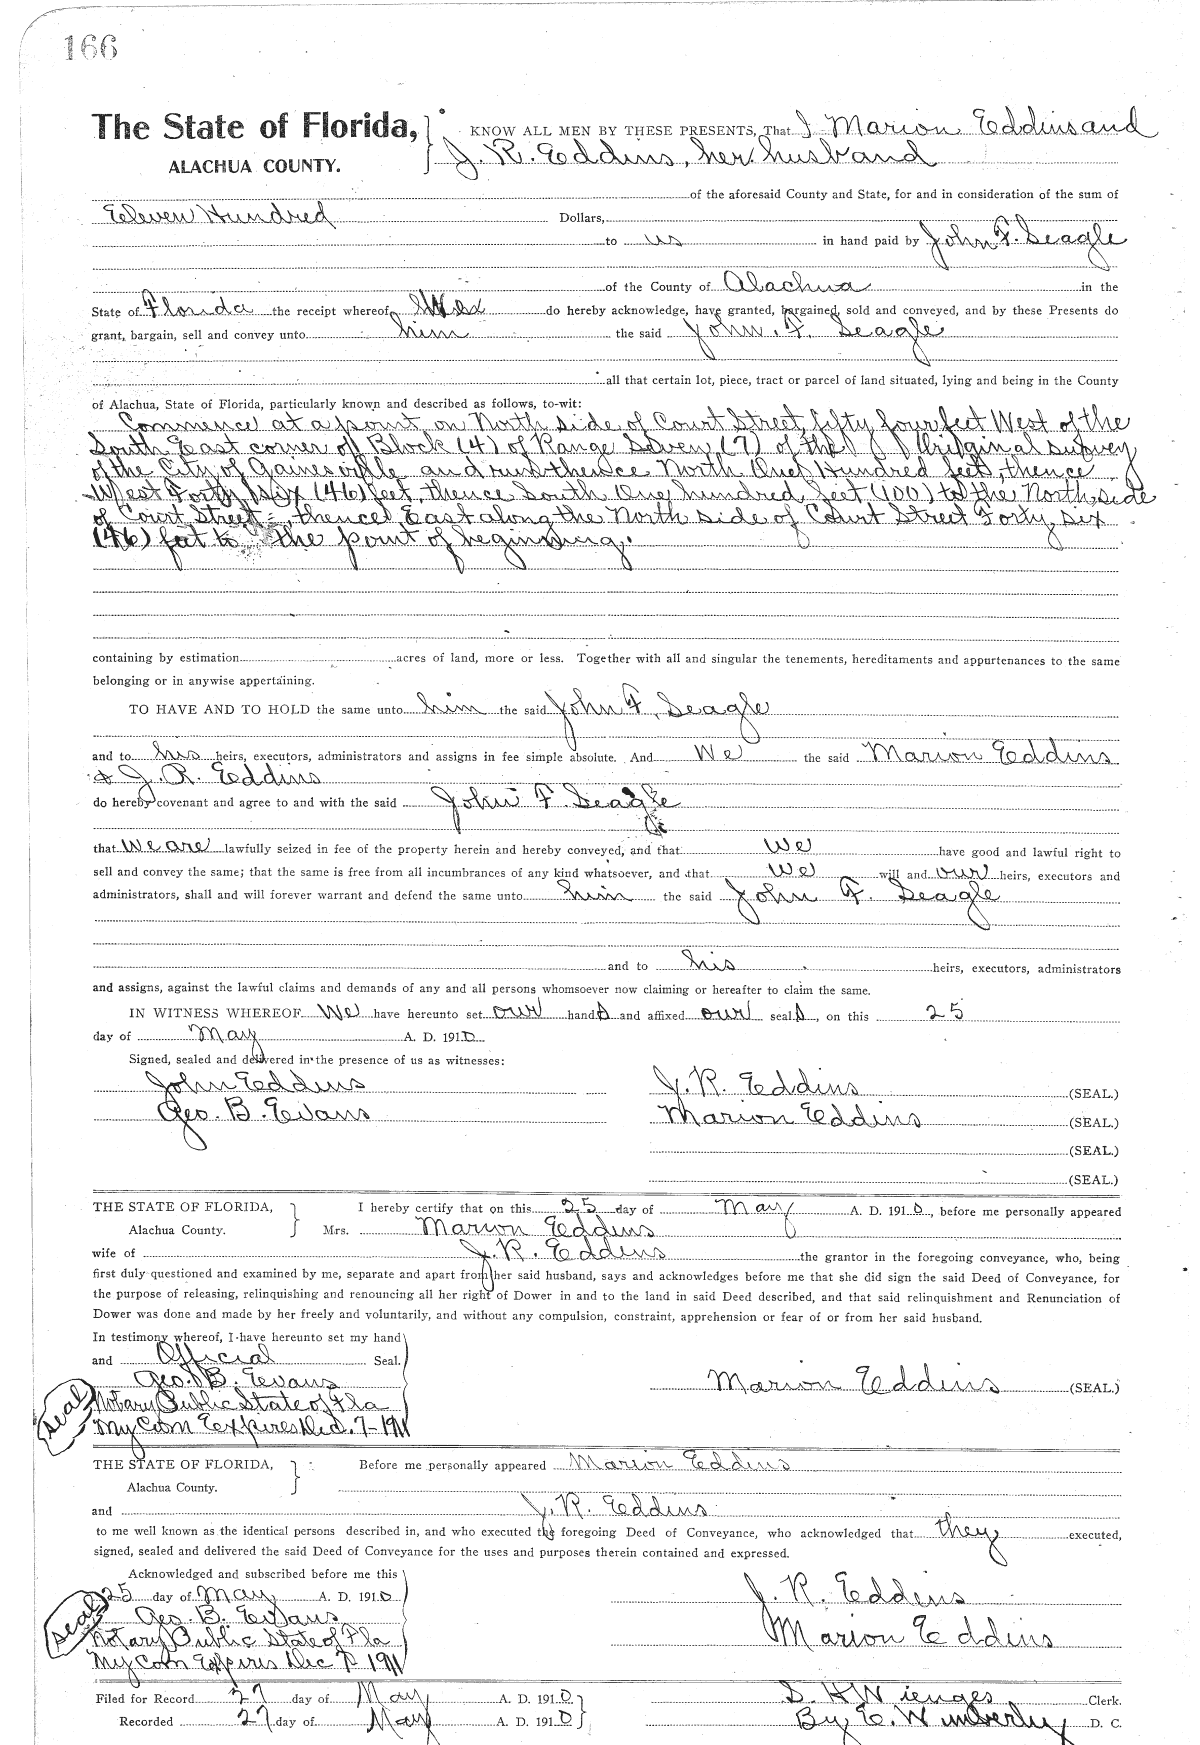 166
The State of Florida, KNOW ALL MEN BY THESE PRESENTS, That I Marion Eddins and
ALACHUA COUNTY. J. R. Eddins, her husband
of the aforesaid County and State, for and in consideration of the sum of
Eleven Hundred Dollars,
to us in hand paid by John F. Seagle
of the County of Alachua in the
State of Florida the receipt whereof do hereby acknowledge, have granted, bargained, sold and conveyed, and by these Presents do
grant, bargain, sell and convey unto him the said John F. Seagle
all that certain lot, piece, tract or parcel of land situated, lying and being in the County
of Alachua, State of Florida, particularly known and described as follows, to-wit:
Commence at a point on North side of Court Street, fifty four feet West of the
South East corner of Block (4) of Range Seven (7) of the Original survey
of the City of Gainesville and run thence North One Hundred feet, thence
West Forty six (46) feet, thence South One hundred feet (100) to the North side
of Court Street, thence East along the North side of Court Street Forty six
(46) feet to the point of beginning.
containing by estimation acres of land, more or less. Together with all and singular the tenements, hereditaments and appurtenances to the same
belonging or in anywise appertaining.
TO HAVE AND TO HOLD the same unto him the said John F. Seagle
and to his heirs, executors, administrators and assigns in fee simple absolute. And We the said Marion Eddins
& J. R. Eddins
do hereby covenant and agree to and with the said John F. Seagle
that we are lawfully seized in fee of the property herein and hereby conveyed, and that we have good and lawful right to
sell and convey the same; that the same is free from all incumbrances of any kind whatsoever, and that we will and our heirs, executors and
administrators, shall and will forever warrant and defend the same unto him the said John F. Seagle
and to his heirs, executors, administrators
and assigns, against the lawful claims and demands of any and all persons whomsoever now claiming or hereafter to claim the same.
IN WITNESS WHEREOF We have hereunto set our hands and affixed our seals, on this 25
day of May A. D. 1910
Signed, sealed and delivered in the presence of us as witnesses:
John Eddins J. R. Eddins (SEAL.)
Geo. B. Evans Marion Eddins (SEAL.)
(SEAL.)
(SEAL.)
THE STATE OF FLORIDA, I hereby certify that on this 25 day of May A. D. 1910, before me personally appeared
Alachua County. Mrs. Marion Eddins
wife of J. R. Eddins the grantor in the foregoing conveyance, who, being
first duly questioned and examined by me, separate and apart from her said husband, says and acknowledges before me that she did sign the said Deed of Conveyance, for
the purpose of releasing, relinquishing and renouncing all her right of Dower in and to the land in said Deed described, and that said relinquishment and Renunciation of
Dower was done and made by her freely and voluntarily, and without any compulsion, constraint, apprehension or fear of or from her said husband.
In testimony whereof, I have hereunto set my hand
and Official Seal.
Geo. B. Evans Marion Eddins (SEAL.)
seal Notary Public State of Fla
My Com Expires Dec. 7-1911
THE STATE OF FLORIDA, Before me personally appeared Marion Eddins
Alachua County.
and J. R. Eddins
to me well known as the identical persons described in, and who executed the foregoing Deed of Conveyance, who acknowledged that they executed,
signed, sealed and delivered the said Deed of Conveyance for the uses and purposes therein contained and expressed.
Acknowledged and subscribed before me this
25 day of May A. D. 1910 J. R. Eddins
seal Geo. B. Evans
Notary Public State of Fla Marion Eddins
My Com Expires Dec 7 1911
Filed for Record 27 day of May A. D. 1910 S. H Wienges Clerk.
Recorded 27 day of May A. D. 1910 By E. Wimberley D. C.